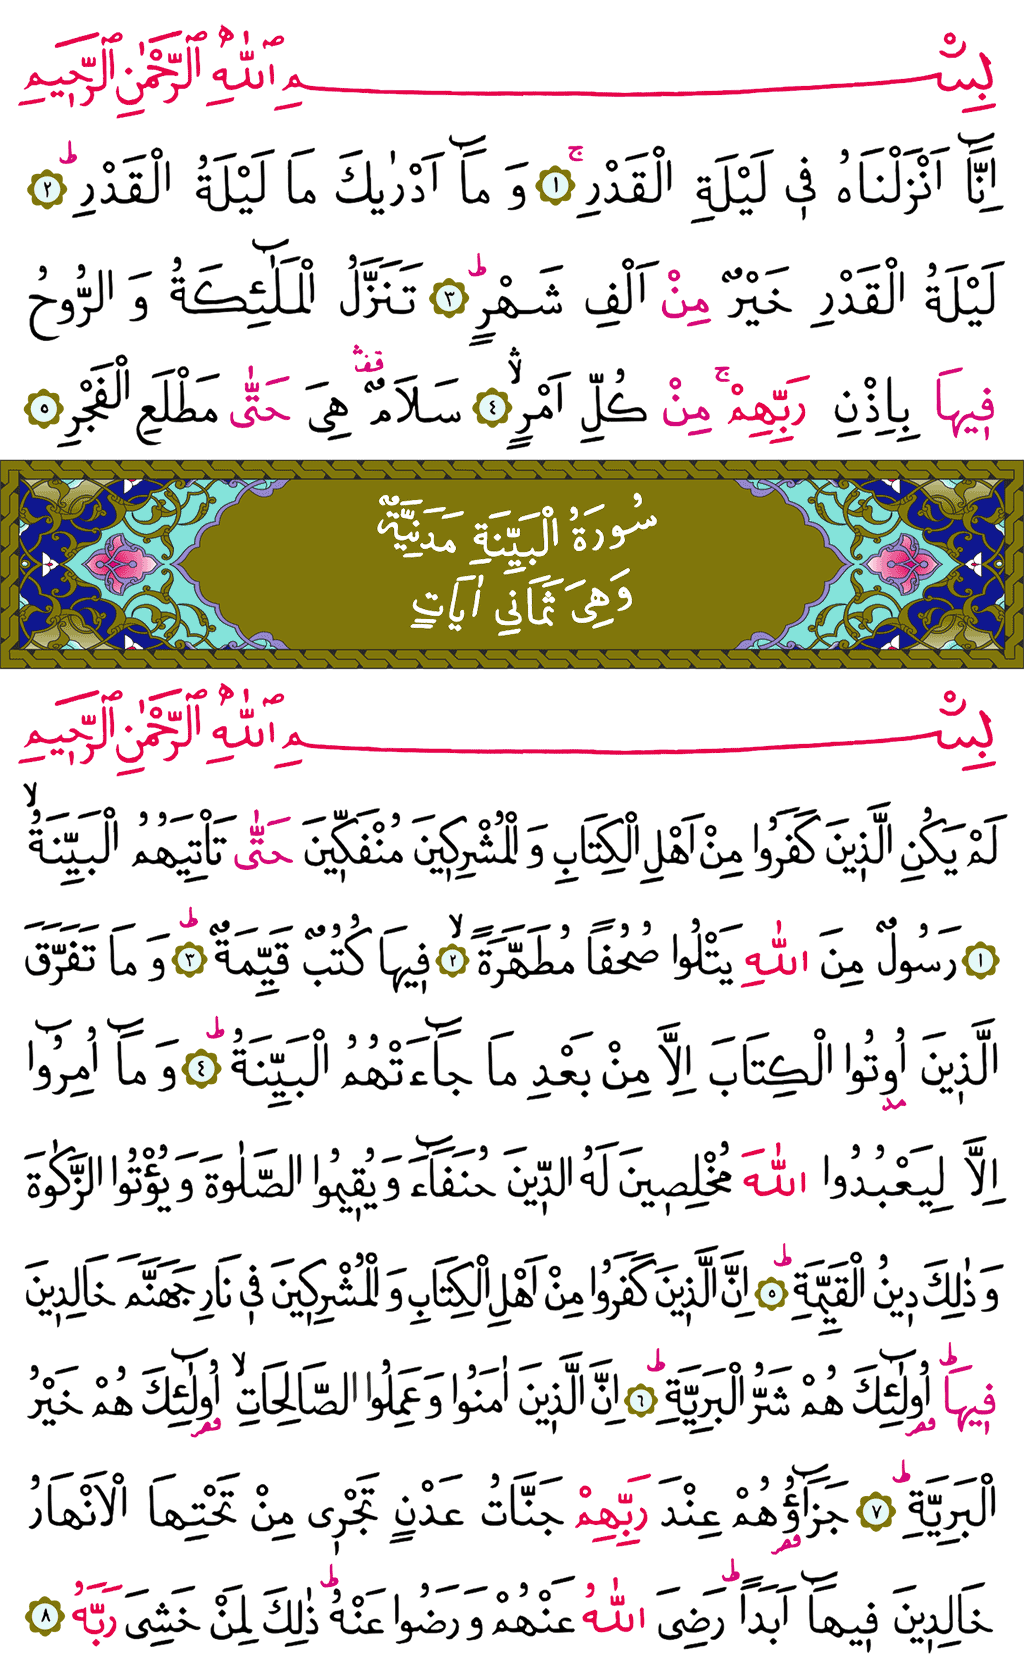 بِسْمِ اللّٰهِ الرَّحْمٰنِ الرَّحٖيمِ
اِنَّٓا اَنْزَلْنَاهُ فٖي لَيْلَةِ الْقَدْرِۚ ﴿١﴾ وَ مَٓا اَدْرٰيكَ مَا لَيْلَةُ الْقَدْرِۜ ﴿٢﴾
لَيْلَةُ الْقَدْرِ خَيْرٌ مِنْ اَلْفِ شَهْرٍۜ ﴿٣﴾ تَنَزَّلُ الْمَلٰٓئِكَةُ وَ الرُّوحُ
فٖيهَا بِاِذْنِ رَبِّهِمْۚ مِنْ كُلِّ اَمْرٍۙۛ ﴿٤﴾ سَلَامٌ۠ هِيَ حَتّٰى مَطْلَعِ الْفَجْرِ ﴿٥﴾
سُورَةُ الْبَيِّنَةِ مَدَنِيَّةٌ
وَهِىَ ثَمَانِي اٰيَاتٍ
بِسْمِ اللّٰهِ الرَّحْمٰنِ الرَّحٖيمِ
لَمْ يَكُنِ الَّذٖينَ كَفَرُوا مِنْ اَهْلِ الْكِتَابِ وَ الْمُشْرِكٖينَ مُنْفَكّٖينَ حَتّٰى تَاْتِيَهُمُ الْبَيِّنَةُۙ
﴿١﴾ رَسُولٌ مِنَ اللّٰهِ يَتْلُوا صُحُفًا مُطَهَّرَةًۙ ﴿٢﴾ فٖيهَا كُتُبٌ قَيِّمَةٌۜ ﴿٣﴾ وَ مَا تَفَرَّقَ
الَّذٖينَ اُوتُوا الْكِتَابَ اِلَّا مِنْ بَعْدِ مَا جَٓاءَتْهُمُ الْبَيِّنَةُۜ ﴿٤﴾ وَ مَٓا اُمِرُٓوا
اِلَّا لِيَعْبُدُوا اللّٰهَ مُخْلِصٖينَ لَهُ الدّٖينَ حُنَفَٓاءَ وَ يُقٖيمُوا الصَّلٰوةَ وَ يُؤْتُوا الزَّكٰوةَ
وَ ذٰلِكَ دٖينُ الْقَيِّمَةِۜ ﴿٥﴾ اِنَّ الَّذٖينَ كَفَرُوا مِنْ اَهْلِ الْكِتَابِ وَ الْمُشْرِكٖينَ فٖي نَارِ جَهَنَّمَ خَالِدٖينَ
فٖيهَاۜ اُو۬لٰٓئِكَ هُمْ شَرُّ الْبَرِيَّةِۜ ﴿٦﴾ اِنَّ الَّذٖينَ اٰمَنُوا وَ عَمِلُوا الصَّالِحَاتِۙ اُو۬لٰٓئِكَ هُمْ خَيْرُ
الْبَرِيَّةِۜ ﴿٧﴾ جَزَٓاؤُ۬هُمْ عِنْدَ رَبِّهِمْ جَنَّاتُ عَدْنٍ تَجْرٖي مِنْ تَحْتِهَا الْاَنْهَارُ
خَالِدٖينَ فٖيهَٓا اَبَدًاۜ رَضِيَ اللّٰهُ عَنْهُمْ وَ رَضُوا عَنْهُۜ ذٰلِكَ لِمَنْ خَشِيَ رَبَّهُ ﴿٨﴾